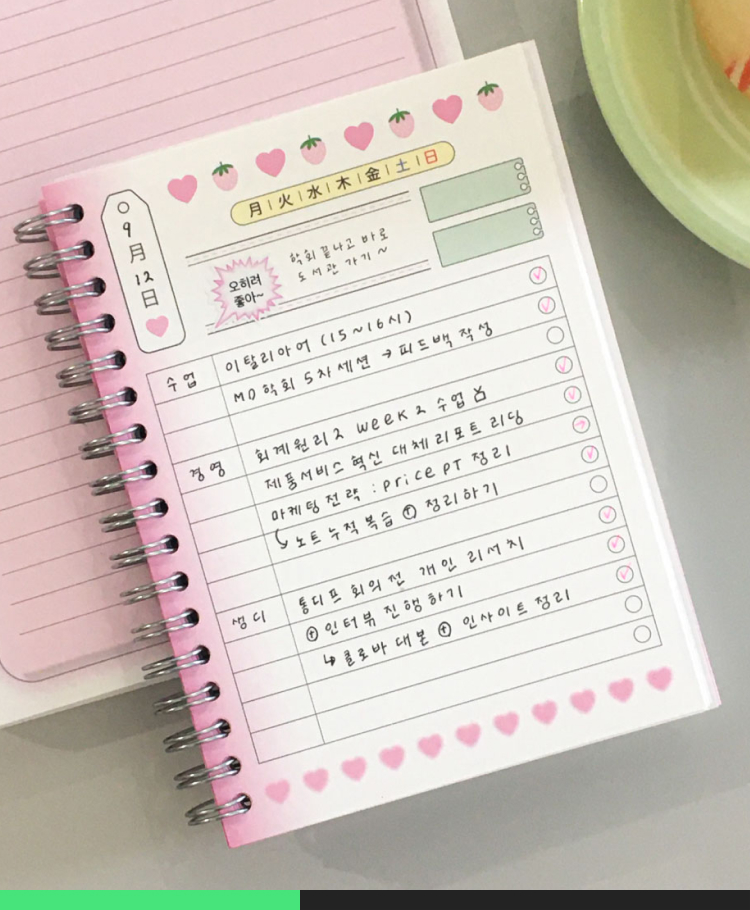 9
月
12
日
月 | 火 | 水 | 木 | 金 | 土 | 日
오히려
좋아~
학회 끝나고 바로
도서관 가기~
수업 이탈리아어 (15~16시)
MD학회 5차세션 → 피드백 작성
경영 회계원리2 week2 수업
제품서비스 혁신 대체리포트 리딩
마케팅 전략 : price PT 정리
노트 누적 복습 + 정리하기
생디 통디프 회의 전 개인 리서치
+ 인터뷰 진행하기
↳ 클로바 대본 + 인사이트 정리